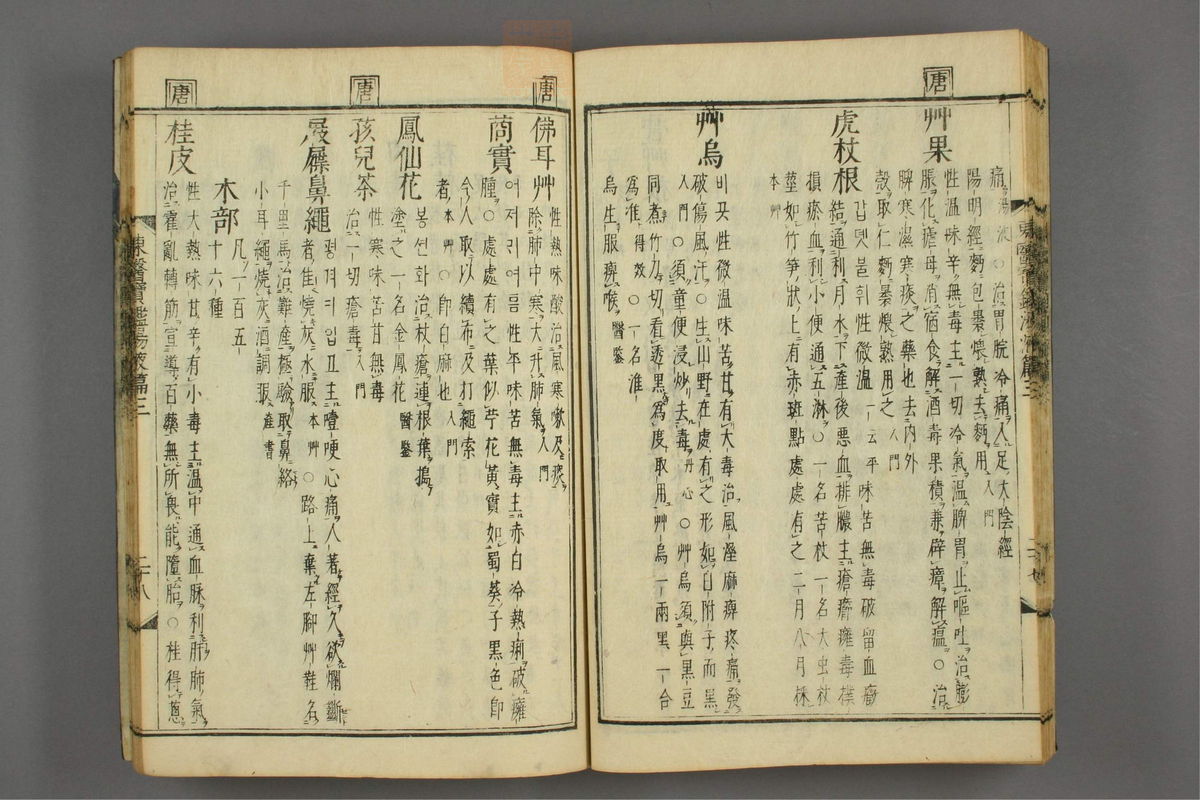 唐
痛湯泡○治胃脘冷痛入足太陰經
陽明經麪包裹煨熟去麪用入門
艸果
性温味辛無毒主一切冷氣温脾胃止嘔吐治膨
脹化瘧母消宿食解酒毒果積兼辟瘴解瘟○治
脾寒濕寒痰之藥也去內外
殼取仁麪裹煨熟用之入門
虎杖根
감뎻불휘性微温一云平味苦無毒破留血癥
結通利月水下產後惡血排膿主瘡癤癰毒撲
損瘀血利小便通五淋○一名苦杖一名大虫杖
莖如竹笋狀上有赤斑點處處有之二月八月採
本艸
艸烏
바곳性微温味苦甘有大毒治風溼麻痺疼痛發
破傷風汗○生山野在處有之形如白附子而黑
入門○須童便浸炒去毒丹心○艸烏須與黑豆
同煮竹刀切看透黑爲度取用艸烏一兩黑一合
爲准得效○一名淮
烏生服痺喉醫鑒
東醫寶鑑湯液篇三
唐
佛耳艸
性熱味酸治風寒嗽及痰
除肺中寒大升肺氣入門
茼實
어저귀여름性平味苦無毒主赤白冷熱痢破癰
腫○處處有之葉似苧花黃實如蜀葵子黑色卽
今人取以績布及打繩索
者本艸○卽白麻也入門
鳳仙花
봉션화治杖瘡連根葉搗
塗之一名金鳳花醫鑒
唐
孩兒茶
性寒味苦甘無毒
治一切瘡毒入門
屐屧鼻繩
者佳燒灰水服本艸○路上棄左脚艸鞋名
千里馬治難產極驗取鼻絡
小耳繩燒灰酒調服產書
木部
凡一百五
十六種
唐
桂皮
性大熱味甘辛有小毒主温中通血脉利肝肺氣
治霍亂轉筋宣導百藥無所畏能墮胎○桂得葱
東醫寶鑑湯液篇三
二十八